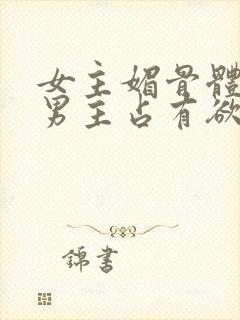 女主媚骨體
男主占有欲
錦書